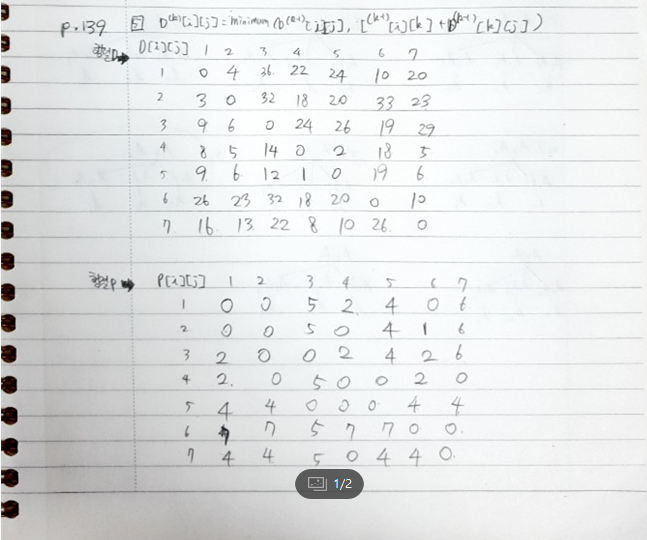 p.139 5 D^(k)[i][j] = minimum (D^(k-1)[i][j], D^(k-1)[i][k] + D^(k-1)[k][j])
행렬D → D[i][j] 1 2 3 4 5 6 7
1 0 4 36 22 24 10 20
2 3 0 32 18 20 33 23
3 9 6 0 24 26 19 29
4 8 5 14 0 2 18 5
5 9 6 12 1 0 19 6
6 26 23 32 18 20 0 10
7 16 13 22 8 10 26 0
행렬P → P[i][j] 1 2 3 4 5 6 7
1 0 0 5 2 4 0 6
2 0 0 5 0 4 1 6
3 2 0 0 2 4 2 6
4 2 0 5 0 0 2 0
5 4 4 0 0 0 4 4
6 7 7 5 7 7 0 0
7 4 4 5 0 4 4 0
1/2